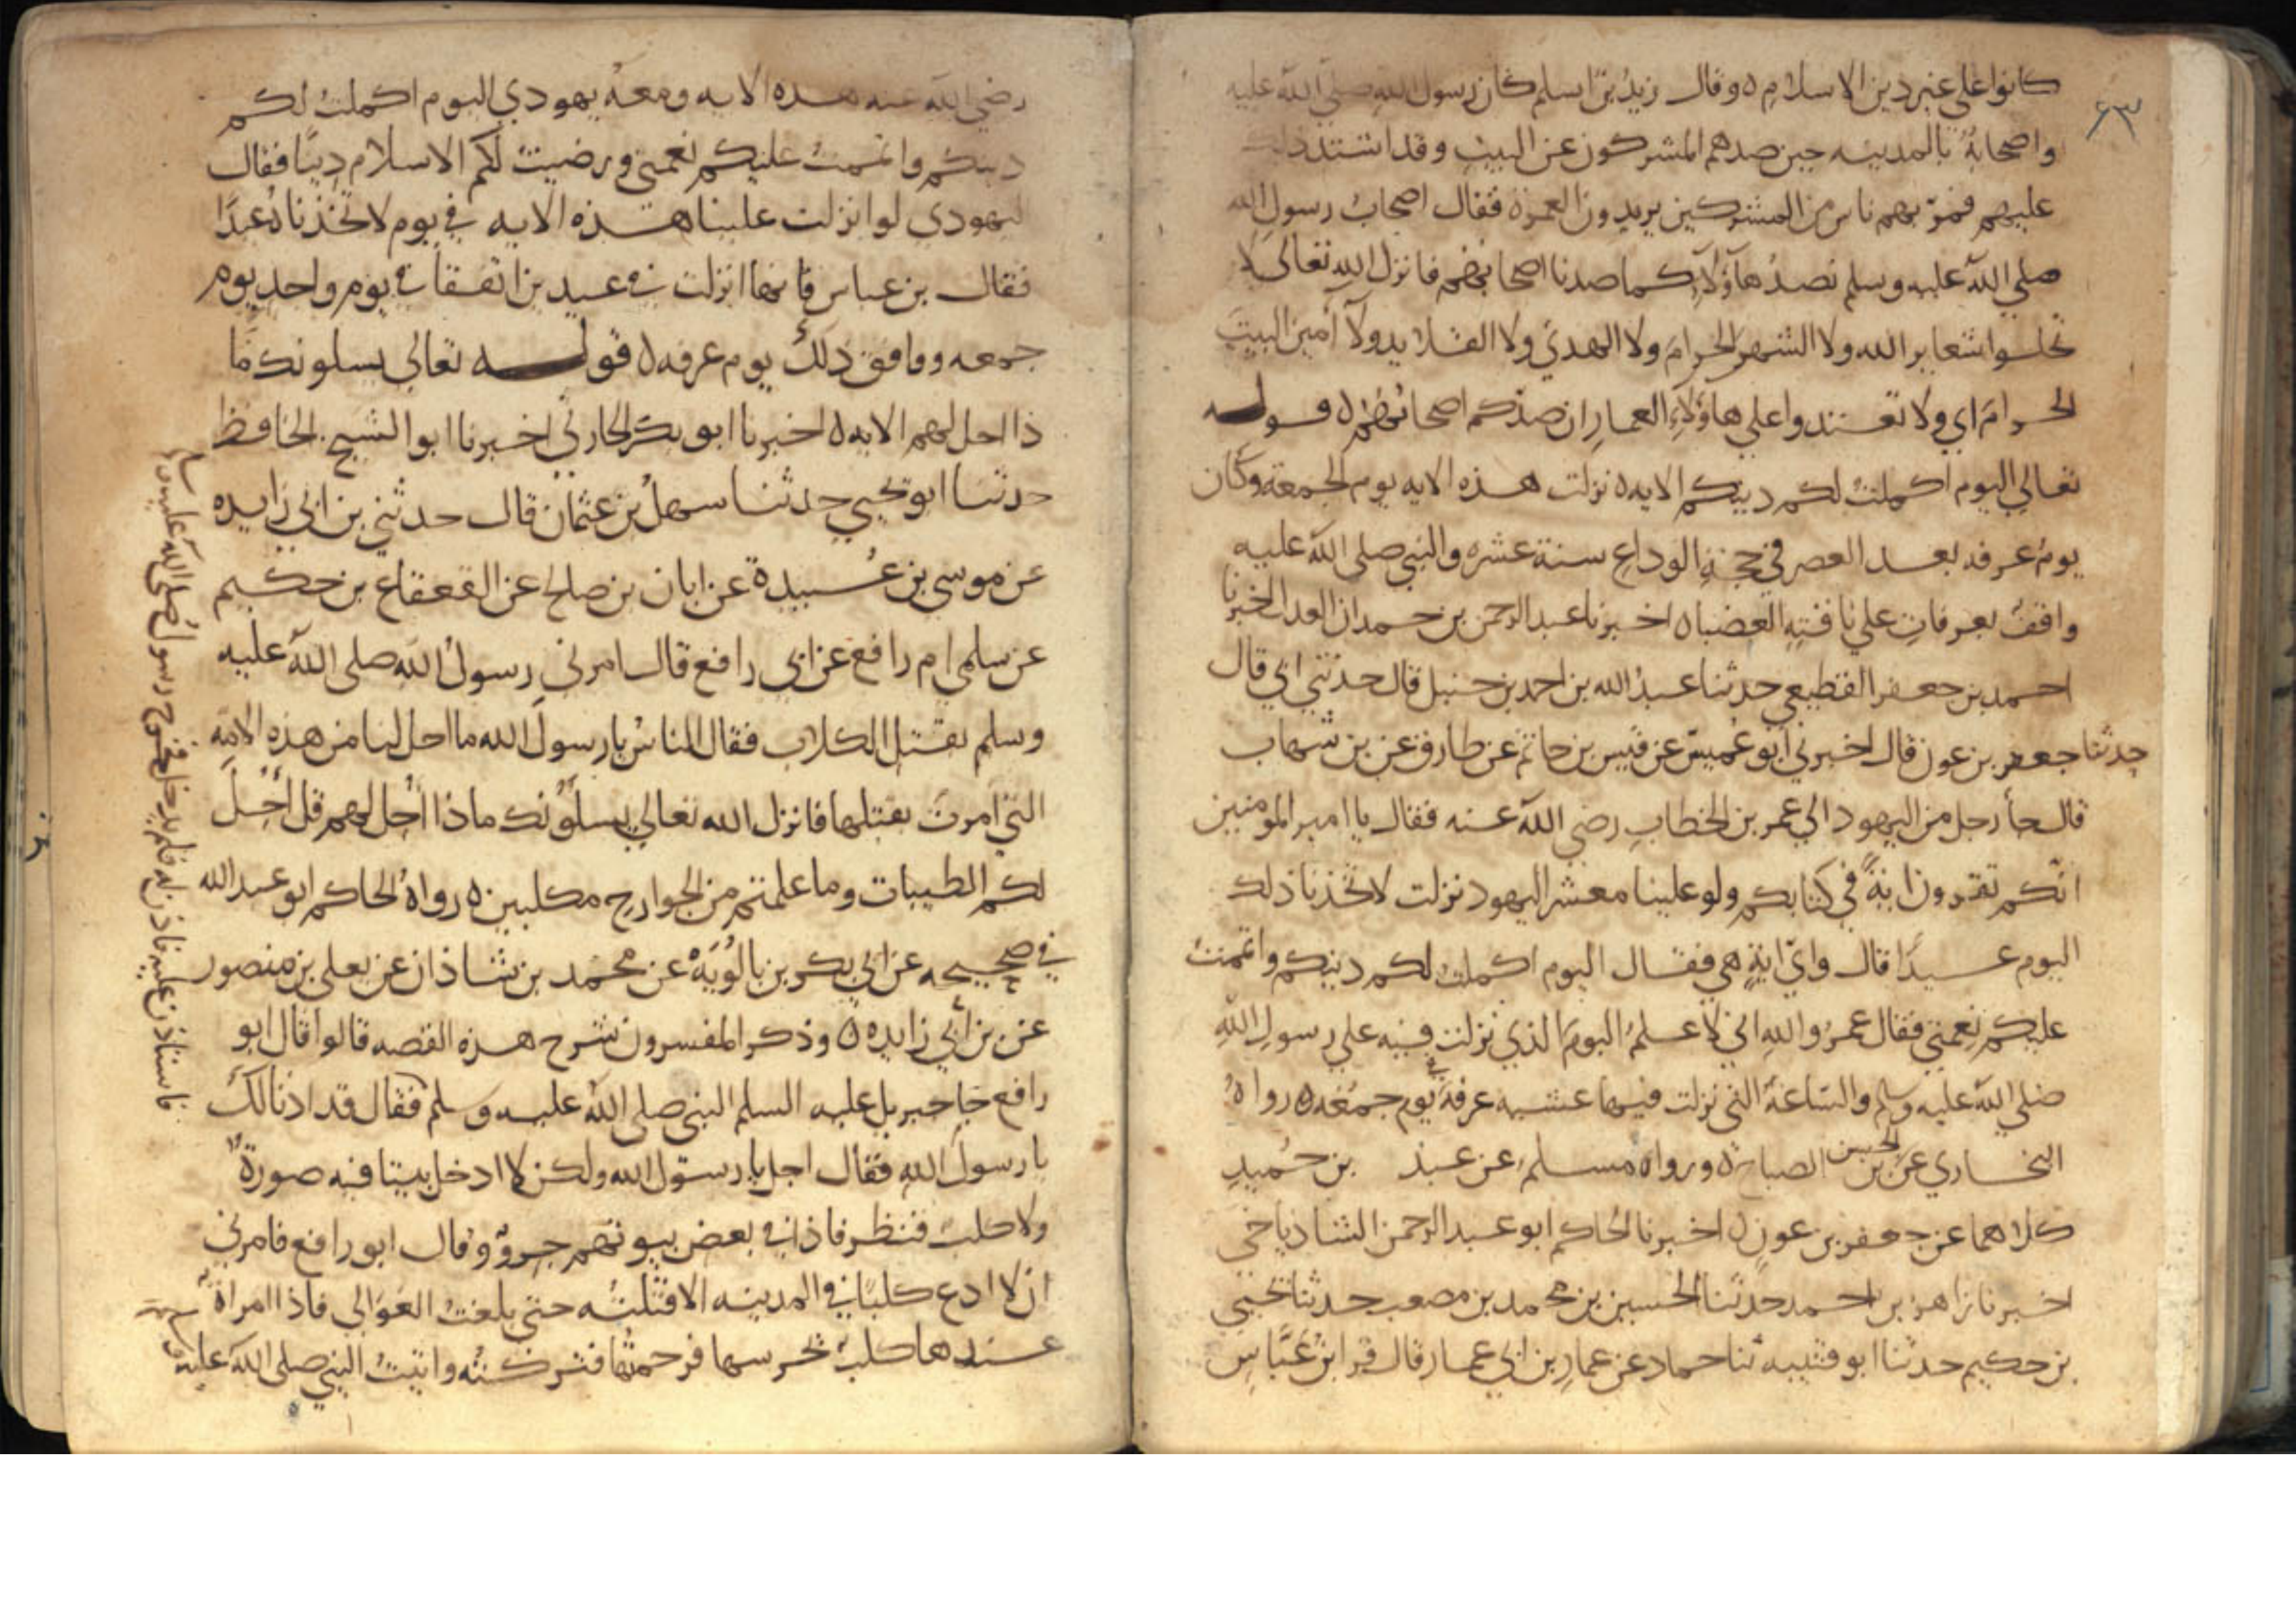 ٦٣
كانوا على غير دين الاسلام ه وقال زيد بن اسلم كان رسول الله صلى الله عليه
واصحابه بالمدينه حين صدهم المشركون عن البيت وقد اشتد ذلك
عليهم فمر بهم ناس من المشركين يريدون العمرة فقال اصحاب رسول الله
صلى الله عليه وسلم نصد هآؤلآء كما صدنا اصحابهم فانزل الله تعالى لا
تحلوا شعاير الله ولا الشهر الحرام ولا الهدي ولا القلايد ولا آمين البيت
الحرام اي ولا تعتدوا على هاؤلآء العمار ان صدكم اصحابهم ه قوله
تعالى اليوم اكملت لكم دينكم الايه ه نزلت هذه الايه يوم الجمعة وكان
يوم عرفه بعد العصر في حجة الوداع سنة عشره والنبي صلى الله عليه
واقف بعرفات على ناقته العضبا ه اخبرنا عبد الرحمن بن حمدان العدل اخبرنا
احمد بن جعفر القطيعي حدثنا عبد الله بن احمد بن حنبل قال حدثني ابي قال
حدثنا جعفر بن عون قال اخبرني ابو عميس عن قيس بن حاتم عن طارق عن بن شهاب
قال جأ رجل من اليهود الى عمر بن الخطاب رضي الله عنه فقال يا امير المومنين
انكم تقرون اية في كتابكم ولو علينا معشر اليهود نزلت لاتخذنا ذلك
اليوم عيدا قال واي اية هي فقال اليوم اكملت لكم دينكم واتممت
عليكم نعمتي فقال عمر والله اني لاعلم اليوم الذي نزلت فيه على رسول الله
صلى الله عليه وسلم والساعة التي نزلت فيها عشيه عرفة في يوم جمعه ه رواه
البخاري عن الحسن بن الصباح ه ورواه مسلم عن عبد بن حميد
كلاهما عن جعفر بن عون ه اخبرنا الحاكم ابو عبد الرحمن الشاذياخي
اخبرنا زاهر بن احمد حدثنا الحسين بن محمد بن مصعب حدثنا يحيى
بن حكيم حدثنا ابو قتيبه ثنا حماد عن عمار بن ابي عمار قال قرا ابن عباس
رضي الله عنه هذه الايه ومعه يهودي اليوم اكملت لكم
دينكم واتممت عليكم نعمتي ورضيت لكم الاسلام دينا فقال
اليهودي لو انزلت علينا هذه الايه في يوم لاتخذناه عيدا
فقال بن عباس فانها انزلت في عيدين اتفقا في يوم واحد يوم
جمعه ووافق ذلك يوم عرفه ه قوله تعالى يسلونك ما
ذا احل لهم الايه ه اخبرنا ابو بكر الحارثي اخبرنا ابو الشيخ الحافظ
حدثنا ابو يحيي حدثنا سهل بن عثمان قال حدثني بن ابي زايده
عن موسى بن عبيدة عن ابان بن صالح عن القعقاع بن حكيم
عن سلمى ام رافع عن ابي رافع قال امرني رسول الله صلى الله عليه
وسلم بقتل الكلاب فقال الناس يا رسول الله ما احل لنا من هذه الامه
التي امرت بقتلها فانزل الله تعالى يسلونك ماذا احل لهم قل احل
لكم الطيبات وما علمتم من الجوارح مكلبين ه رواه الحاكم ابو عبد الله
في صحيحه عن ابي بكر بن بالويه عن محمد بن شاذان عن يعلى بن منصور
عن بن أبي زايده ه وذكر المفسرون شرح هذه القصه قالوا قال ابو
رافع جا جبريل عليه السلم النبي صلى الله عليه وسلم فقال قد اذنا لك
يا رسول الله فقال اجل يا رسول الله ولكن لا ادخل بيتا فيه صورة
ولا كلب فنظر فاذا في بعض بيوتهم جرو وقال ابو رافع فامرني
ان لا ادع كلبا في المدينه الا قتلته حتى بلغت العوالي فاذا امراة
عندها كلب يحرسها فرحمتها فتركته واتيت النبي صلى الله عليه
فاستاذن عليه فاذن له فلم يدخل فخرج رسول الله صلى الله عليه وسلم